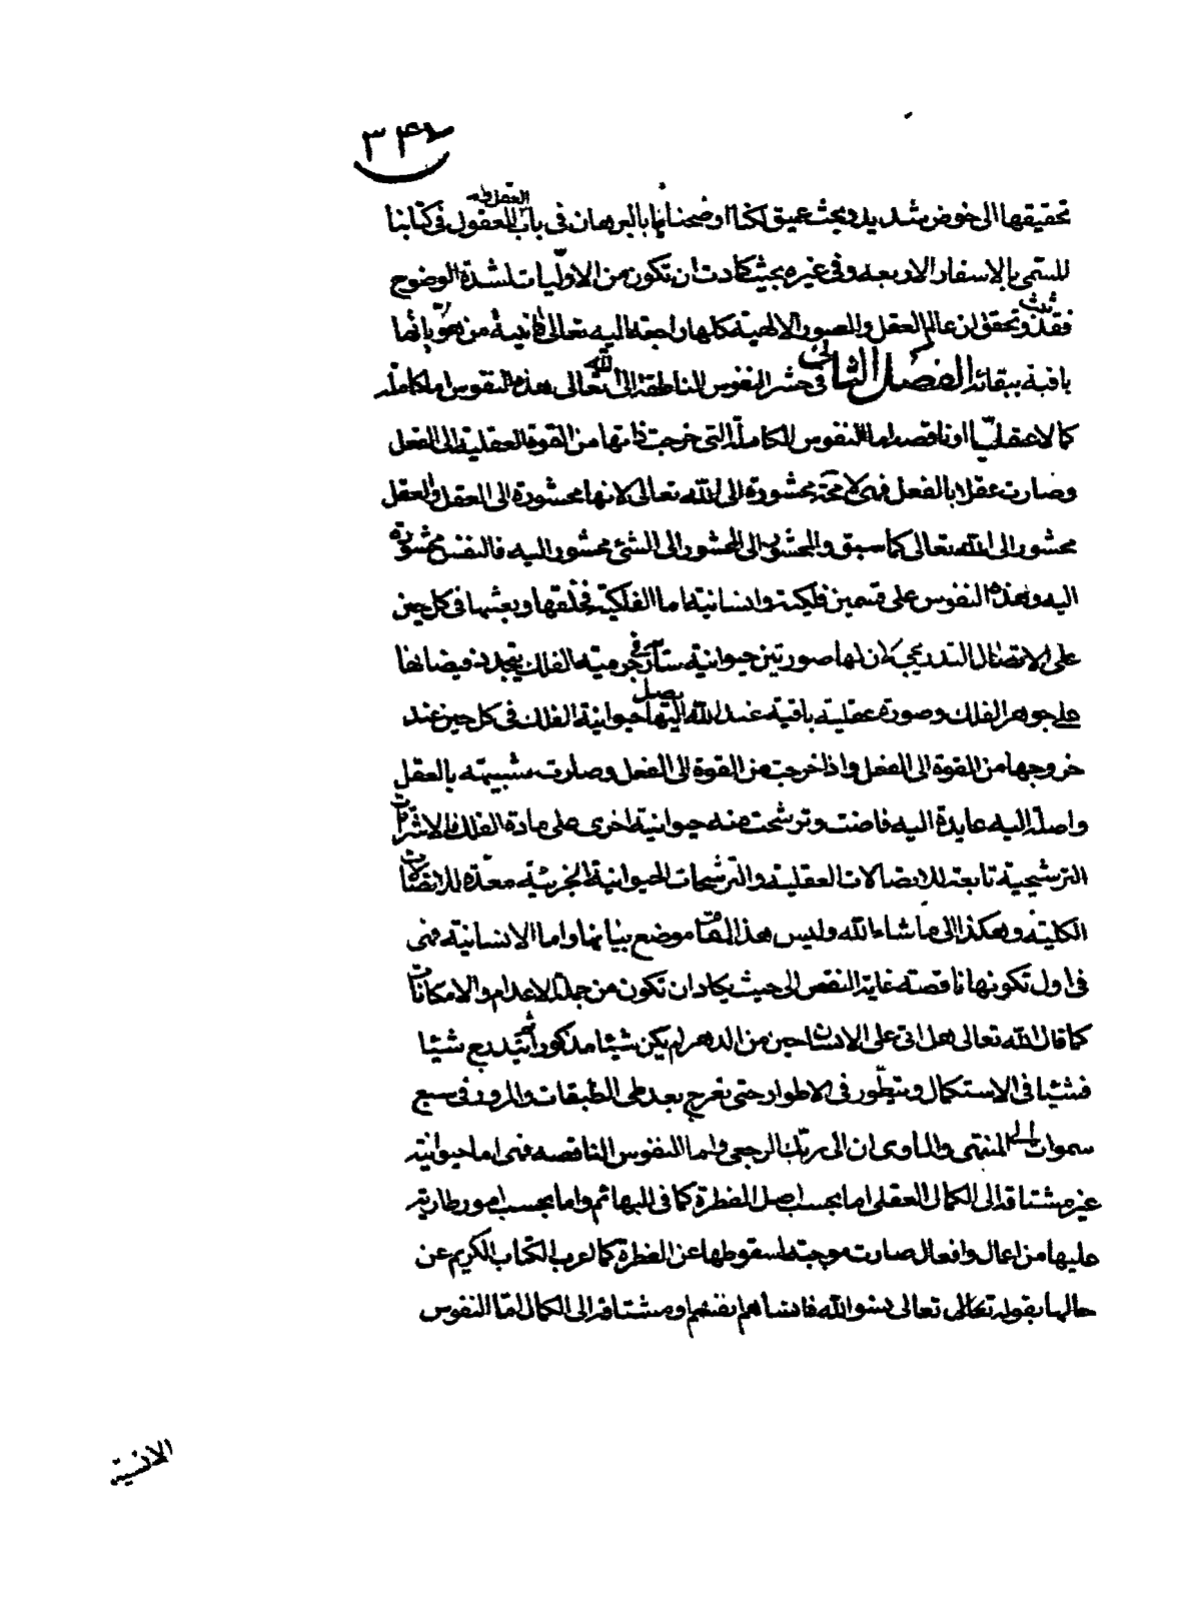 ٣٤٧
تحقيقها الى خوض شديد وبحث عميق لكنا اوضحنا بالبرهان فى باب العقل والمعقول فى كتابنا
المسمى بالاسفار الاربعه وفى غيره بحيث كادت ان تكون من الاوّليات لشدة الوضوح
فقد ثبت وتحقق ان عالم العقل والصور الالهية كلها راجعة اليه تعالى فانية من هويّاتها
باقية ببقائه الفصل الثانى فى حشر النفوس الناطقة الى الله تعالى هذه النفوس اما كاملة
كمالا عقليّا او ناقصه اما النفوس الكاملة التى خرجت ذاتها من القوة العقلية الى الفعل
وصارت عقلا بالفعل فهى لا محة محشورة الى الله تعالى لانها محشورة الى العقل والعقل
محشور الى الله تعالى كما سبق والمحشور الى المحشور الى الشئ محشور اليه فالنفس محشورة
اليه وهذه النفوس على قسمين فلكية وانسانية اما الفلكية فخلقها وبعثها فى كل حين
على الاتصال التدريجى لان لها صورتين حيوانية سارية فى جرمية الفلك يتجدد فيضانها
على جوهر الفلك وصورة عقلية باقية عند الله يصل اليها حيوانية الفلك فى كل حين عند
خروجها من القوة الى الفعل واذا خرجت من القوة الى الفعل وصارت شبيهة بالعقل
واصلة اليه عايدة اليه فاضت وترشحت منه حيوانية اخرى على مادة الفلك فالاشراقات
الترشيحية تابعة للاتصالات العقلية والترشحات الحيوانية الجزئية معدّة للاتصالات
الكلية وهكذا الى ما شاء الله وليس هذا المقام موضع بيانها واما الانسانية فهى
فى اول تكونها ناقصة غاية النقص الى حيث يكاد ان تكون من جملة الاعدام والامكانات
كما قال الله تعالى هل اتى على الانسان حين من الدهر لم يكن شيئا مذكورا ثم يتدرج شيئا
فشيئا فى الاستكمال ويتطّور فى الاطوار حتى تعرج بعد طى الطبقات والمرور فى سبع
سموات الى المنتهى والماوى ان الى ربّك الرجعى واما النفوس الناقصه فهى اما حيوانية
غير مشتاقة الى الكمال العقلى اما بحسب اصل الفطرة كما فى البهائم واما بحسب امور طارية
عليها من اعمال وافعال صارت موجبة لسقوطها عن الفطرة كما اعرب الكتاب الكريم عن
حالها بقوله تعالى تعالى نسوا الله فانساهم انفسهم او مشتاقة الى الكمال امّا النفوس
الانسية